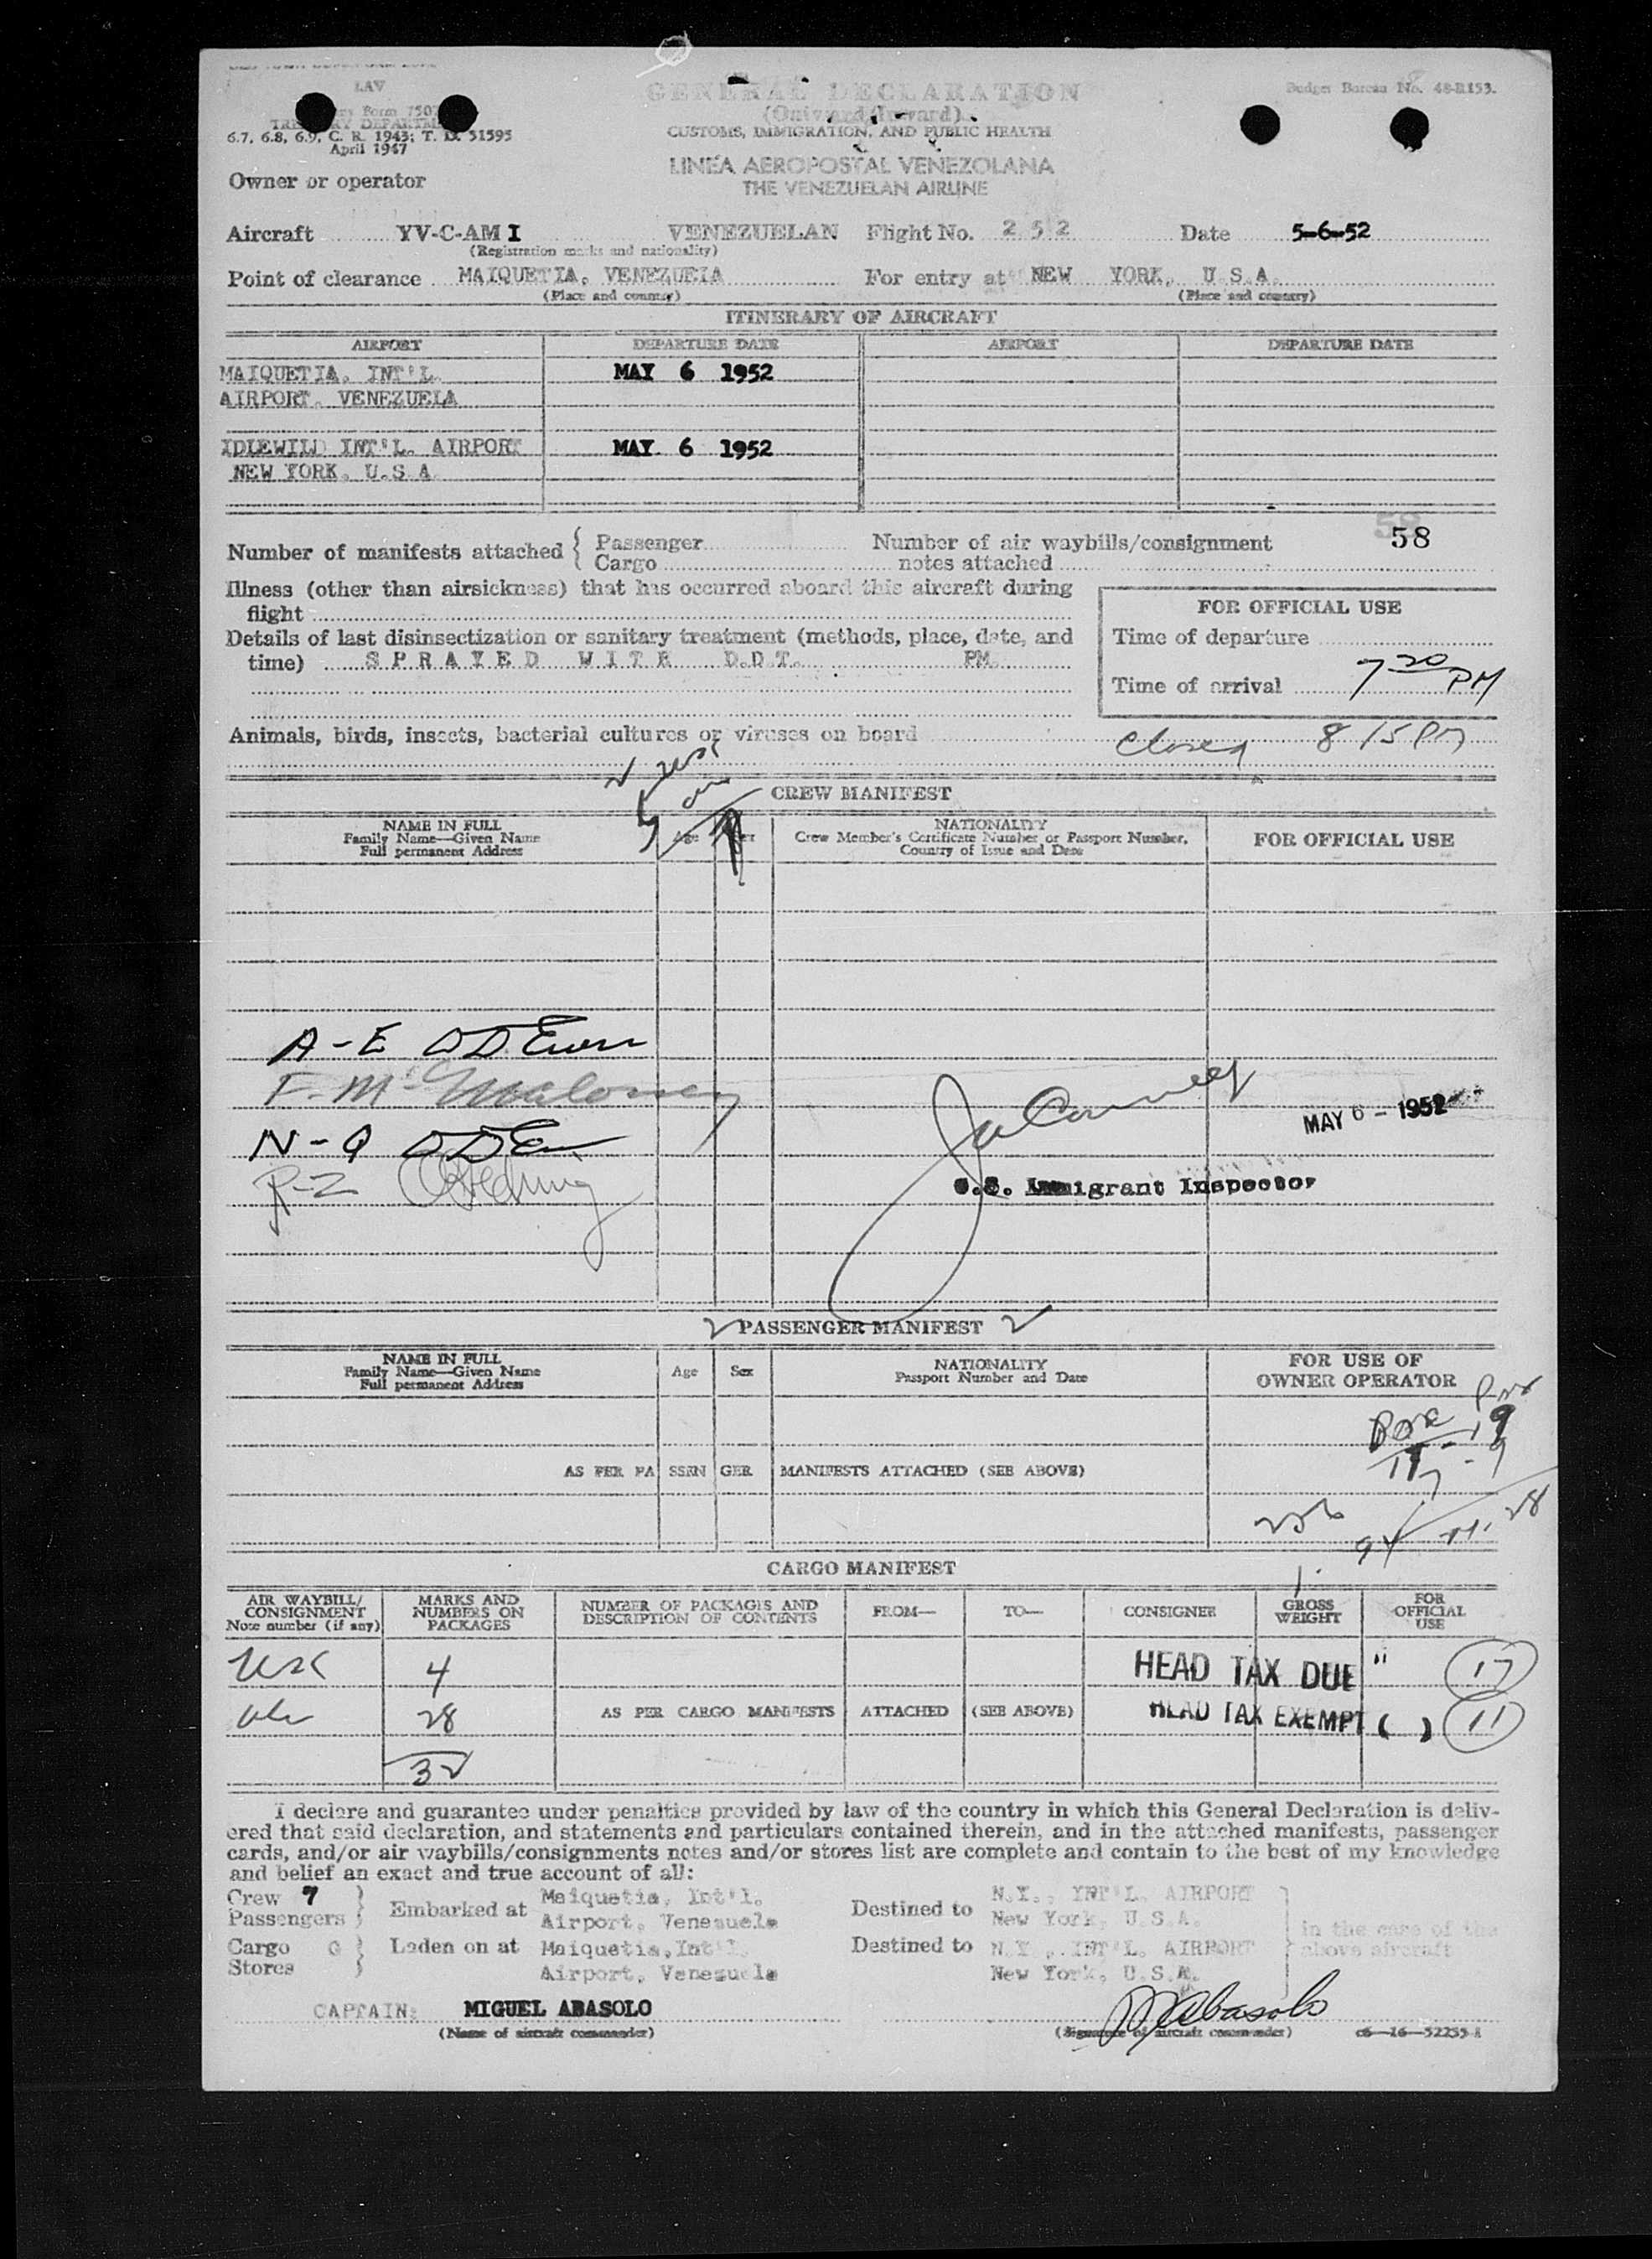 LAV
GENERAL DECLARATION
Budget Bureau No. 48-R153.
Form 7507
(Outward/Inward)
TREASURY DEPARTMENT
CUSTOMS, IMMIGRATION, AND PUBLIC HEALTH
6.7, 6.8, 6.9, C. R. 1943; T. D. 51595
April 1947
LINEA AEROPOSTAL VENEZOLANA
THE VENEZUELAN AIRLINE
Owner or operator
Aircraft YV-C-AM I VENEZUELAN Flight No. 2 5 2 Date 5-6-52
(Registration marks and nationality)
Point of clearance MAIQUETIA, VENEZUEIA For entry at NEW YORK, U.S.A.
(Place and country) (Place and country)
ITINERARY OF AIRCRAFT
AIRPORT DEPARTURE DATE AIRPORT DEPARTURE DATE
MAIQUETIA, INT'L. MAY 6 1952
AIRPORT. VENEZUELA
IDLEWILD INT'L. AIRPORT MAY. 6 1952
NEW YORK, U.S.A.
Number of manifests attached { Passenger Number of air waybills/consignment 58
Cargo notes attached
Illness (other than airsickness) that has occurred aboard this aircraft during
flight
FOR OFFICIAL USE
Details of last disinsectization or sanitary treatment (methods, place, date, and
time) S P R A Y E D W I T H D.D.T. PM.
Time of departure
Time of arrival 7 20 PM
Animals, birds, insects, bacterial cultures or viruses on board
Closed 8 15 PM
CREW MANIFEST
NAME IN FULL
Family Name—Given Name
Full permanent Address
Age Sex
NATIONALITY
Crew Member's Certificate Number or Passport Number,
Country of Issue and Date
FOR OFFICIAL USE
A-E
F-M Maloney
N-Q
R-Z
MAY 6 - 1952
U.S. Immigrant Inspector
PASSENGER MANIFEST
NAME IN FULL
Family Name—Given Name
Full permanent Address
Age Sex
NATIONALITY
Passport Number and Date
FOR USE OF
OWNER OPERATOR
AS PER PASSENGER MANIFESTS ATTACHED (SEE ABOVE)
28
CARGO MANIFEST
AIR WAYBILL/
CONSIGNMENT
Note number (if any)
MARKS AND
NUMBERS ON
PACKAGES
NUMBER OF PACKAGES AND
DESCRIPTION OF CONTENTS
FROM— TO— CONSIGNEE
GROSS
WEIGHT
FOR
OFFICIAL
USE
USC 4 HEAD TAX DUE " 17
28 AS PER CARGO MANIFESTS ATTACHED (SEE ABOVE) HEAD TAX EXEMPT ( ) 11
32
I declare and guarantee under penalties provided by law of the country in which this General Declaration is deliv-
ered that said declaration, and statements and particulars contained therein, and in the attached manifests, passenger
cards, and/or air waybills/consignments notes and/or stores list are complete and contain to the best of my knowledge
and belief an exact and true account of all:
Crew 7
Passengers } Embarked at Maiquetia, Int'l.
Airport, Venezuela
Destined to N.Y., YNT'L. AIRPORT
New York, U.S.A.
Cargo G
Stores } Laden on at Maiquetia, Int'l.
Airport, Venezuela
Destined to N.Y., INT'L. AIRPORT
New York, U.S.A.
in the case of the
above aircraft
CAPTAIN: MIGUEL ABASOLO
MAbasolo
(Name of aircraft commander) (Signature of aircraft commander) c6—16—52255-1